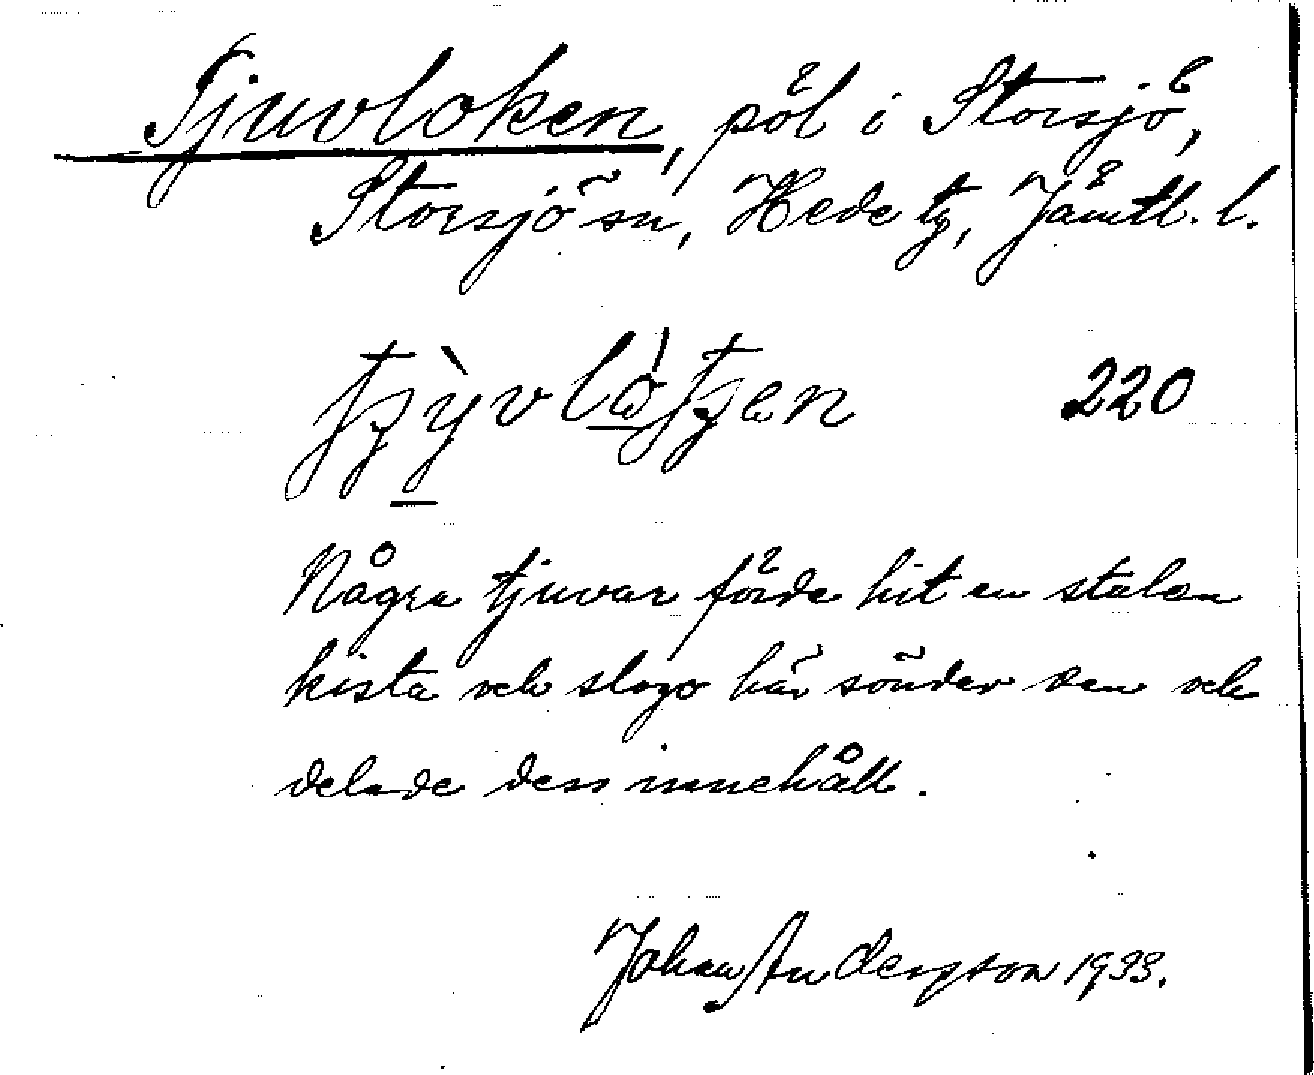 Tjuvloken, pöl i Storsjö,
Storsjö sn, Hede tg, Jämtl. l.
220
Några tjuvar förde hit en stulen
kista och slogo här sönder den och
delade dess innehåll.
Johan Anderson 1933.